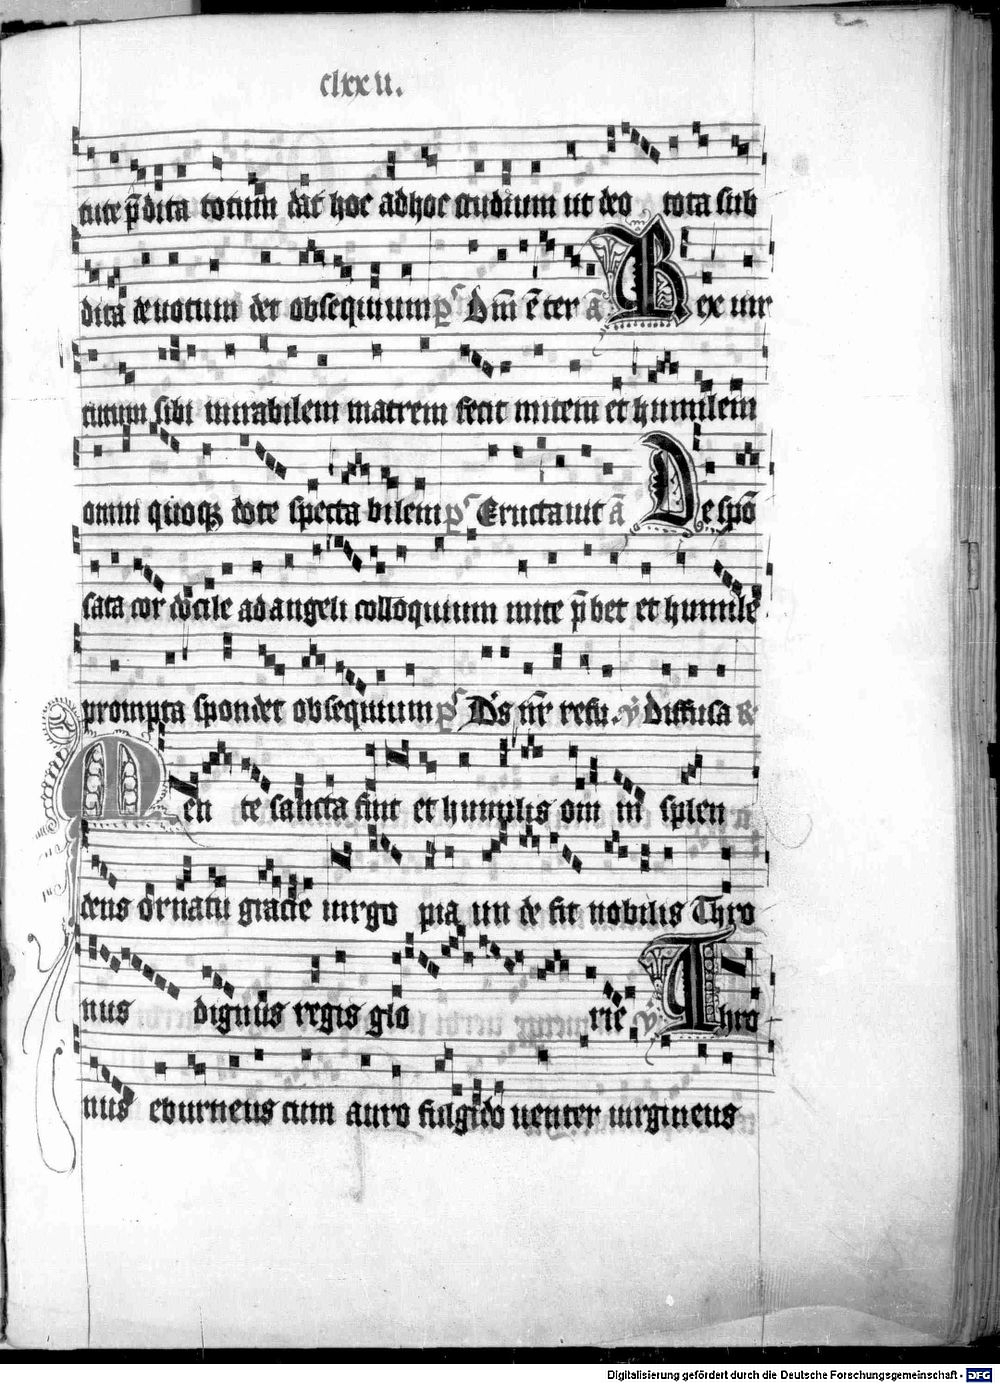 clxxii.
tute p̄dita totum dat hoc adhoc studium ut deo tota sub
dita deuotum det obsequium p̄s Dm̄ ē ter ā Rex uir
tutum sibi mirabilem matrem fecit mitem et humilem
omni quoqꝫ dote specta bilem p̄s Eructauit ā Despō
sata cor docile ad angeli colloquium mite p̄bet et humile
prompta spondet obsequium p̄s Ds nr̄ refu. ꝟ Diffusa
Men te sancta sint et humilis om̄ in splen
dens ornatu gracie uirgo pia un de fit nobilis Thro
nus dignus regis glo rie ꝟ Thro
nus eburneus cum auro fulgido uenter uirgineus
Digitalisierung gefördert durch die Deutsche Forschungsgemeinschaft - DFG